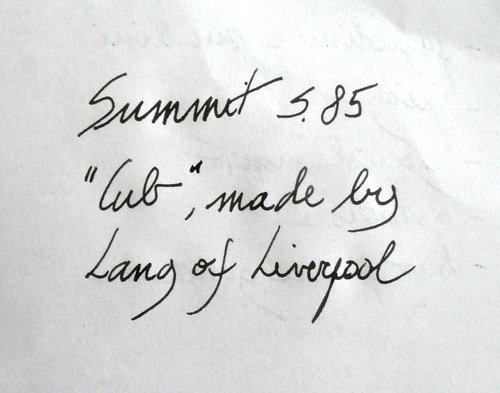 Summit S.85
"Cub", made by
Lang of Liverpool